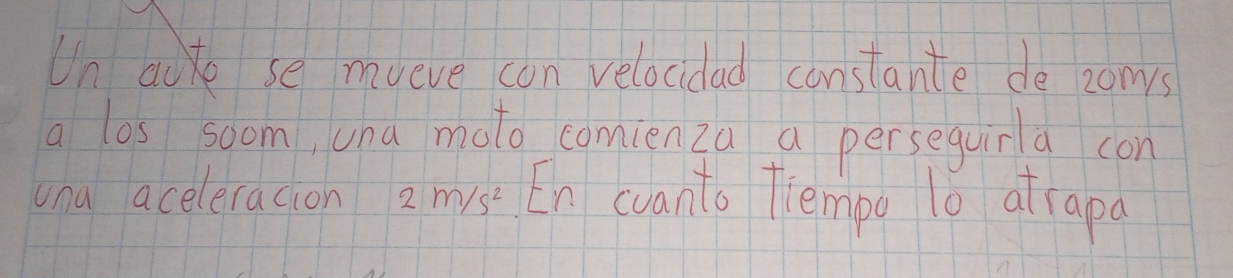 Un auto se mueve con velocidad constante de 20m/s
a los 500m, una moto comienza a perseguirla con
una aceleracion 2 m/s². En cuanto Tiempo lo atrapa